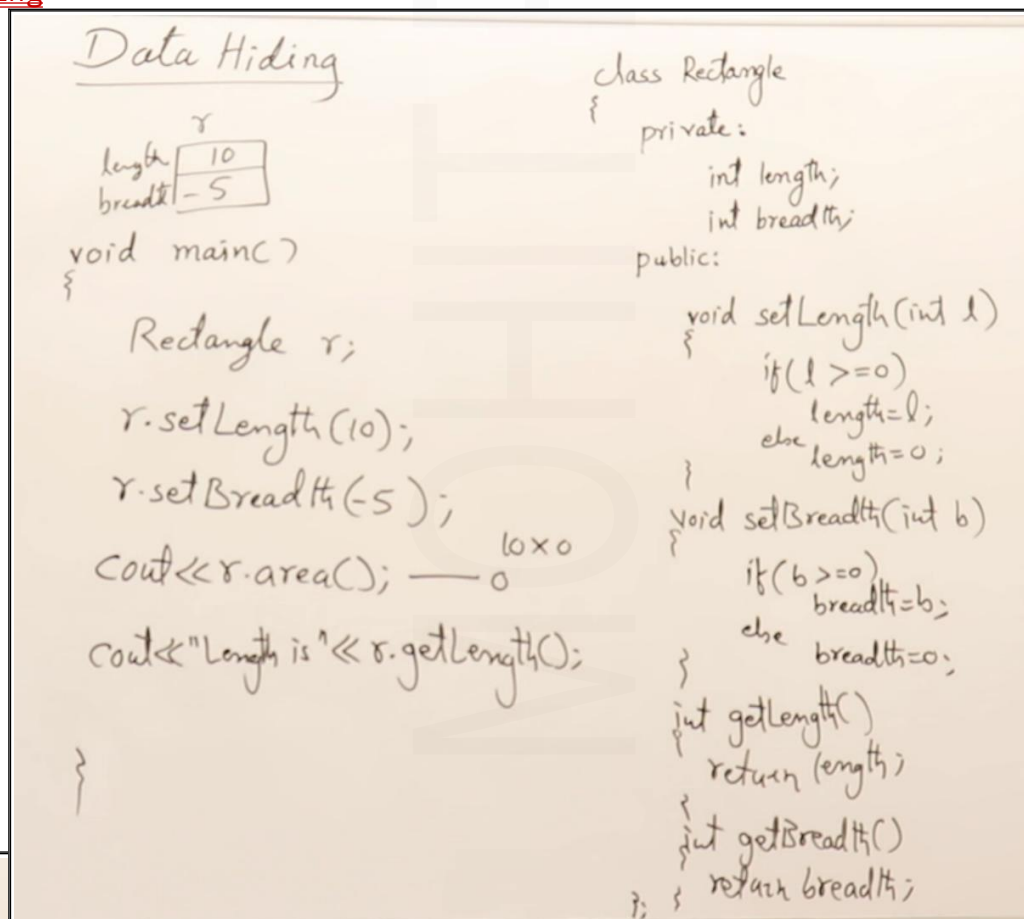 Data Hiding
r
length 10
breadth -5
void main()
{
Rectangle r;
r.setLength(10);
r.setBreadth(-5);
10x0
cout<<r.area(); — 0
cout<<"Length is"<< r.getLength();
}
class Rectangle
{
private:
int length;
int breadth;
public:
void setLength(int l)
{
if(l >=0)
length=l;
else
length=0;
}
void setBreadth(int b)
{
if(b>=0)
breadth=b;
else
breadth=0;
}
int getLength()
{
return length;
}
int getBreadth()
{
return breadth;
}
};
MOHIT